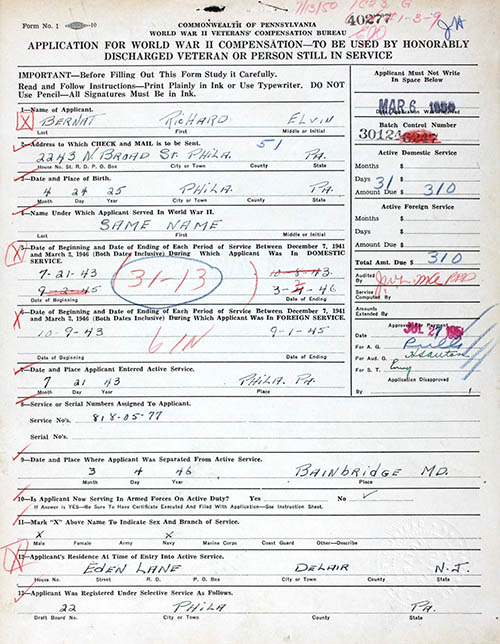 Form No. 1
10
7/13/50
40277
COMMONWEALTH OF PENNSYLVANIA
WORLD WAR II VETERANS' COMPENSATION BUREAU
APPLICATION FOR WORLD WAR II COMPENSATION—TO BE USED BY HONORABLY
DISCHARGED VETERAN OR PERSON STILL IN SERVICE
IMPORTANT—Before Filling Out This Form Study it Carefully.
Read and Follow Instructions—Print Plainly in Ink or Use Typewriter. DO NOT
Use Pencil—All Signatures Must Be in Ink.
Applicant Must Not Write
In Space Below
MAR 6 1950
Batch Control Number
30124
1—Name of Applicant.
X BERNAT RICHARD ELVIN
Last First Middle or Initial
2—Address to Which CHECK and MAIL is to be Sent.
51
2243 N. BROAD ST. PHILA. PA.
House No. St. R. D. P. O. Box City or Town County State
3—Date and Place of Birth.
4 24 25 PHILA. PA.
Month Day Year City or Town County State
4—Name Under Which Applicant Served In World War II.
SAME NAME
Last First Middle or Initial
X
5—Date of Beginning and Date of Ending of Each Period of Service Between December 7, 1941
and March 2, 1946 (Both Dates Inclusive) During Which Applicant Was In DOMESTIC
SERVICE.
7-21-43 31-13 10-8-43
9-2-45 3-4-46
Date of Beginning Date of Ending
X
6—Date of Beginning and Date of Ending of Each Period of Service Between December 7, 1941
and March 2, 1946 (Both Dates Inclusive) During Which Applicant Was In FOREIGN SERVICE.
10-9-43 9-1-45
Date of Beginning Date of Ending
7—Date and Place Applicant Entered Active Service.
7 21 43 PHILA. PA.
Month Day Year Place
8—Service or Serial Numbers Assigned To Applicant.
Service No's. 818-05-77
Serial No's.
9—Date and Place Where Applicant Was Separated From Active Service.
3 4 46 BAINBRIDGE MD.
Month Day Year Place
10—Is Applicant Now Serving in Armed Forces On Active Duty? Yes No ✓
If Answer is YES—Be Sure To Have Certificate Executed And Filed With Application—See Instruction Sheet.
11—Mark "X" Above Name To Indicate Sex and Branch of Service.
X X
Male Female Army Navy Marine Corps Coast Guard Other—Describe
X
12—Applicant's Residence At Time of Entry Into Active Service.
EDEN LANE DELAIR N.J.
House No. Street R. D. P. O. Box City or Town County State
13—Applicant Was Registered Under Selective Service As Follows.
22 PHILA PA.
Draft Board No. City or Town County State
Active Domestic Service
Months $
Days 31 $
Amount Due $ 310
Active Foreign Service
Months $
Days $
Amount Due $
Total Amt. Due $ 310
Audited By
Service Computed By
Amounts Extended By
Approved For Payment
JUL 27 1950
For A. G.
For Aud. G.
For S. T.
Application Disapproved
By 1